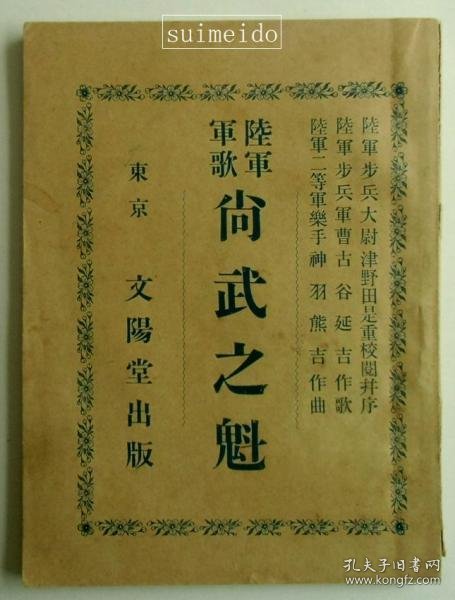 suimeido
陸軍步兵大尉津野田是重校閱幷序
陸軍步兵軍曹古谷延吉作歌
陸軍二等軍樂手神羽熊吉作曲
陸軍
軍歌
尙武之魁
東京 文陽堂出版
孔夫子旧书网
www.kongfz.com